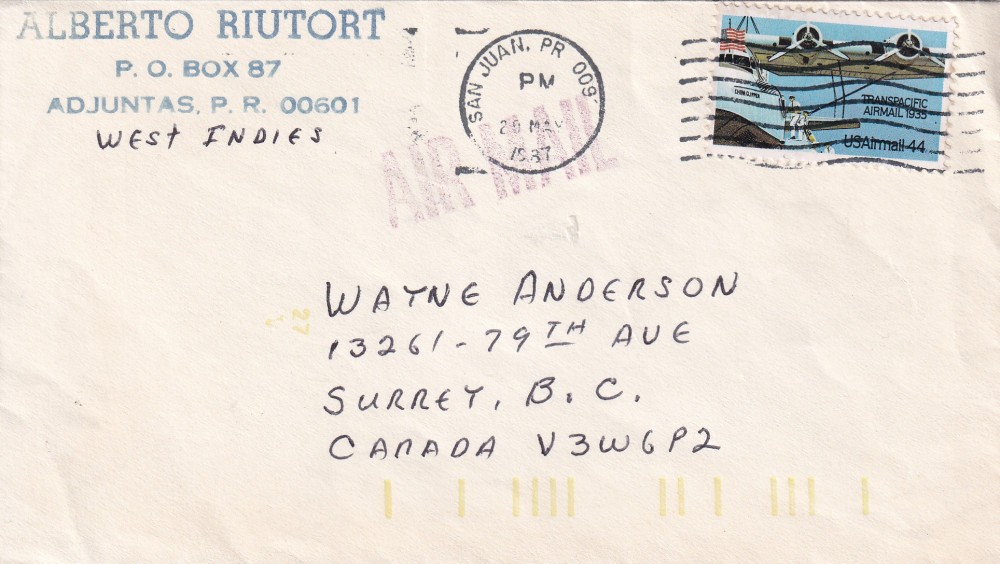 ALBERTO RIUTORT
P. O. BOX 87
ADJUNTAS, P. R. 00601
WEST INDIES
SAN JUAN, PR 009
PM
1987
AIR MAIL
CHINA CLIPPER
TRANSPACIFIC
AIRMAIL 1935
USAirmail 44
WAYNE ANDERSON
13261-79TH AVE
SURREY, B. C.
CANADA V3W6P2
27